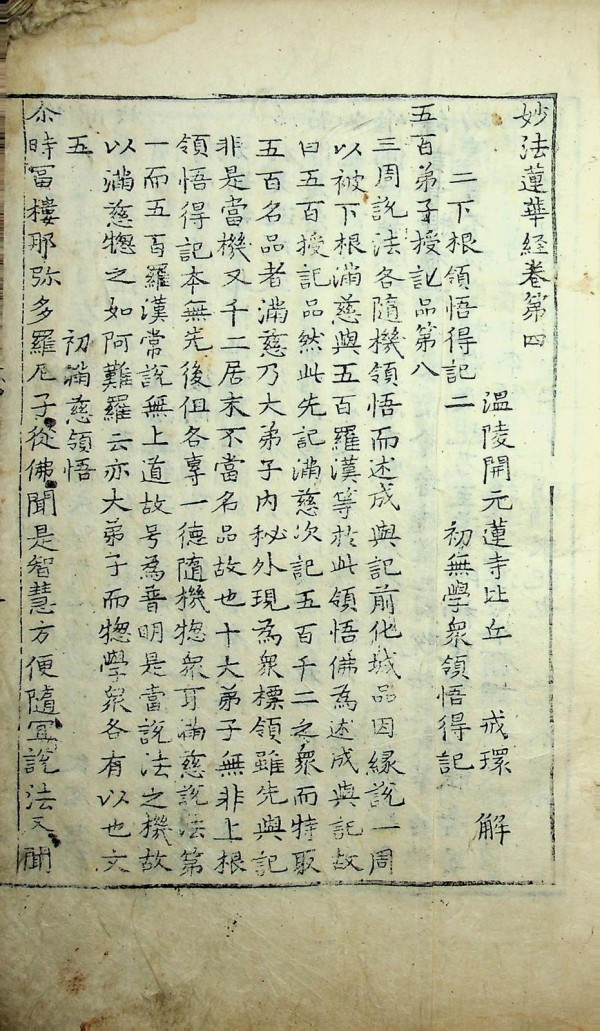 妙法蓮華経巻第四
温陵開元蓮寺比丘 戒環 解
二下根領悟得記二 初無學衆領悟得記
五百弟子授記品第八
三周說法各隨機領悟而述成與記前化城品因緣說一周
以被下根滿慈與五百羅漢等於此領悟佛為述成與記故
曰五百授記品然此先記滿慈次記五百千二之衆而特取
五百名品者滿慈乃大弟子內秘外現為衆標領雖先與記
非是當機又千二居末不當名品故也十大弟子無非上根
領悟得記本無先後但各專一德隨機惣衆耳滿慈說法第
一而五百羅漢常說無上道故号為普明是當說法之機故
以滿慈惣之如阿難羅云亦大弟子而惣學衆各有以也文
五 初滿慈領悟
尒時冨樓那弥多羅尼子從佛聞是智慧方便隨冝說法又聞